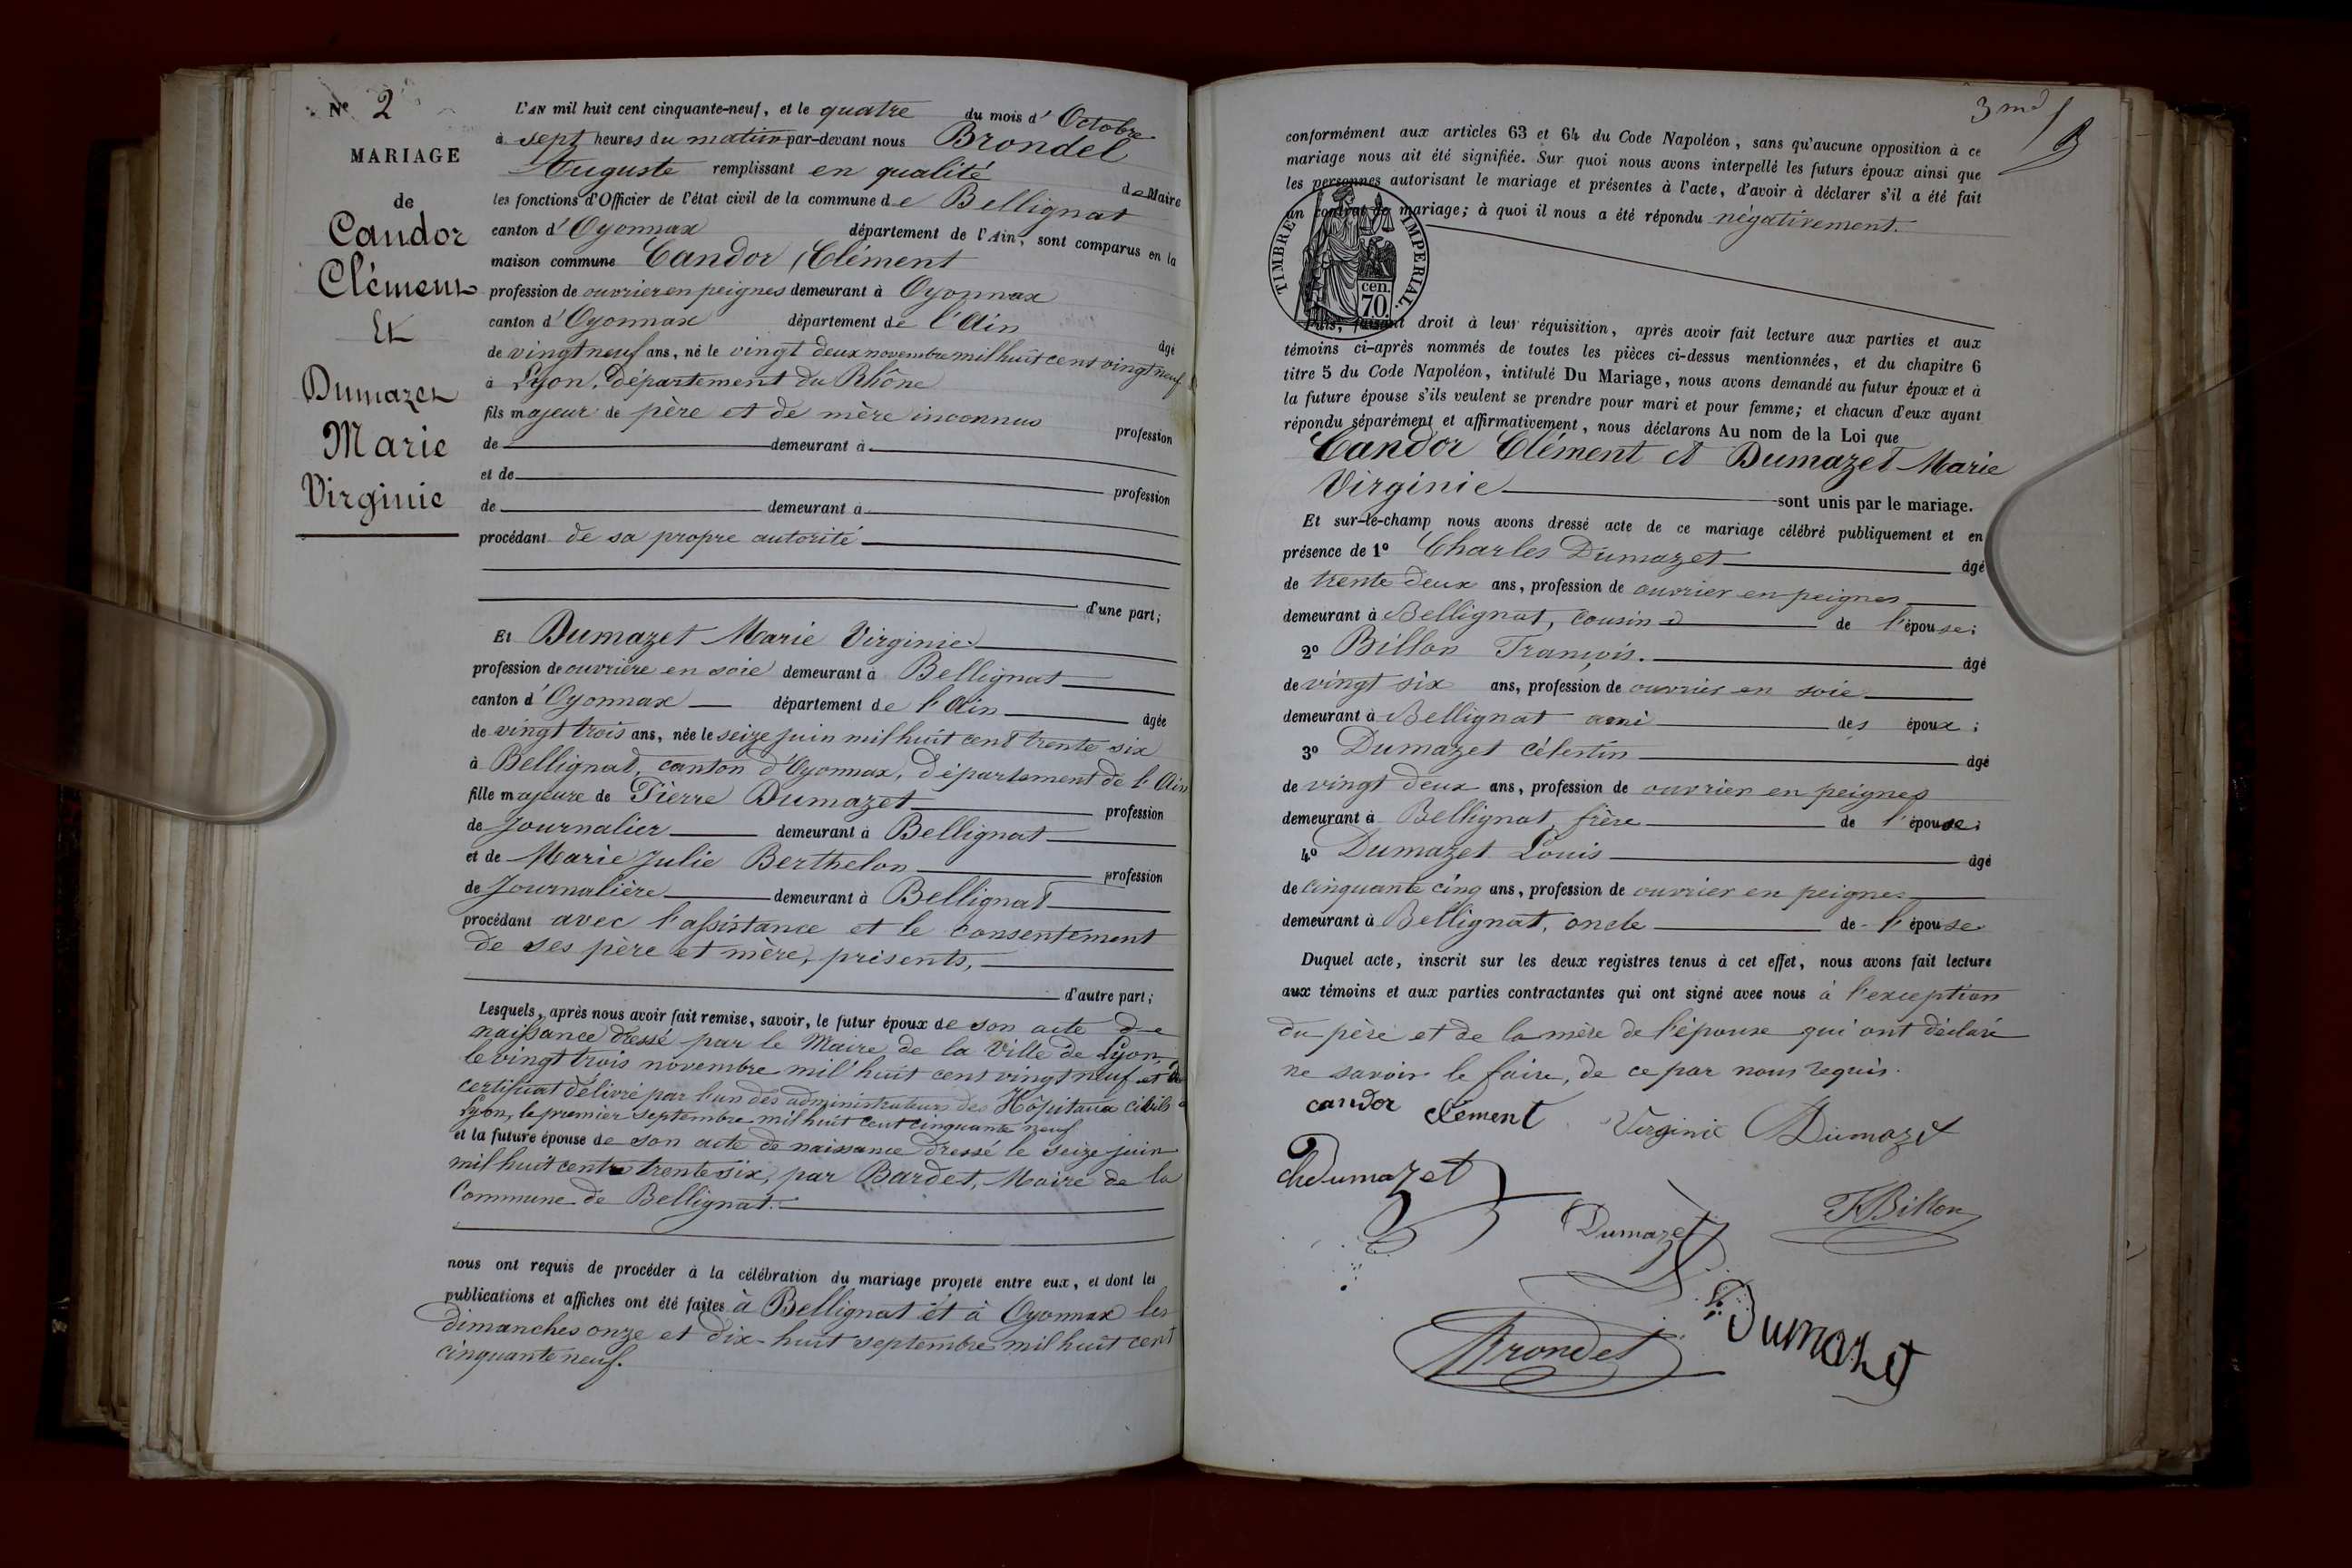 Nº 2
MARIAGE
de
Candor
Clément
Et
Dumazet
Marie
Virginie
L'AN mil huit cent cinquante-neuf, et le quatre du mois d'Octobre
à sept heures du matin par-devant nous Brondel
Auguste remplissant en qualité de Maire
les fonctions d'Officier de l'état civil de la commune de Bellignat
canton d'Oyonnax département de l'Ain, sont comparus en la
maison commune Candor Clément
profession de ouvrier en peignes demeurant à Oyonnax
canton d'Oyonnax département de l'Ain âgé
de vingt neuf ans, né le vingt deux novembre mil huit cent vingt neuf
à Lyon, département du Rhône
fils majeur de père et de mère inconnus profession
de demeurant à
et de profession
de demeurant à
procédant de sa propre autorité
d'une part;
Et Dumazet Marie Virginie
profession de ouvrière en soie demeurant à Bellignat
canton d'Oyonnax département de l'Ain âgée
de vingt trois ans, née le seize juin mil huit cent trente six
à Bellignat, canton d'Oyonnax, département de l'Ain
fille majeure de Pierre Dumazet profession
de Journalier demeurant à Bellignat
et de Marie Julie Berthelon profession
de Journalière demeurant à Bellignat
procédant avec l'assistance et le consentement
de ses père et mère, présents,
d'autre part;
Lesquels, après nous avoir fait remise, savoir, le futur époux de son acte de
naissance dressé par le Maire de la Ville de Lyon,
le vingt trois novembre mil huit cent vingt neuf et du
certificat délivré par l'un des administrateurs des Hôpitaux civils à
Lyon, le premier septembre mil huit cent cinquante neuf
et la future épouse de son acte de naissance dressé le seize juin
mil huit cent trente six, par Bardet, Maire de la
Commune de Bellignat.
nous ont requis de procéder à la célébration du mariage projeté entre eux, et dont les
publications et affiches ont été faites à Bellignat et à Oyonnax les
dimanches onze et dix-huit septembre mil huit cent
cinquante neuf.
conformément aux articles 63 et 64 du Code Napoléon, sans qu'aucune opposition à ce
mariage nous ait été signifiée. Sur quoi nous avons interpellé les futurs époux ainsi que
les personnes autorisant le mariage et présentes à l'acte, d'avoir à déclarer s'il a été fait
un contrat de mariage; à quoi il nous a été répondu négativement.
TIMBRE IMPERIAL.
cen.
70.
Puis, faisant droit à leur réquisition, après avoir fait lecture aux parties et aux
témoins ci-après nommés de toutes les pièces ci-dessus mentionnées, et du chapitre 6
titre 5 du Code Napoléon, intitulé Du Mariage, nous avons demandé au futur époux et à
la future épouse s'ils veulent se prendre pour mari et pour femme; et chacun d'eux ayant
répondu séparément et affirmativement, nous déclarons Au nom de la Loi que
Candor Clément et Dumazet Marie
Virginie sont unis par le mariage.
Et sur-le-champ nous avons dressé acte de ce mariage célébré publiquement et en
présence de 1º Charles Dumazet âgé
de trente deux ans, profession de ouvrier en peignes
demeurant à Bellignat, cousin de l'épouse;
2º Billon François. âgé
de vingt six ans, profession de ouvrier en soie
demeurant à Bellignat ami des époux;
3º Dumazet Célestin âgé
de vingt deux ans, profession de ouvrier en peignes
demeurant à Bellignat, frère de l'épouse;
4º Dumazet Louis âgé
de cinquante cinq ans, profession de ouvrier en peignes
demeurant à Bellignat, oncle de l'épouse
Duquel acte, inscrit sur les deux registres tenus à cet effet, nous avons fait lecture
aux témoins et aux parties contractantes qui ont signé avec nous à l'exception
du père et de la mère de l'épouse qui ont déclaré
ne savoir le faire, de ce par nous requis.
candor clement Virginie Dumazet
ch dumazet
Dumazet
F Billon
Dumazet
Brondel